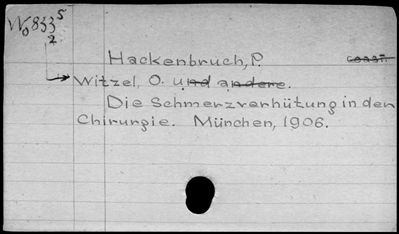 Wo833⁵
2
Hackenbruch, P.
Witzel, O. und andere.
Die Schmerzverhütung in der
Chirurgie. München, 1906.